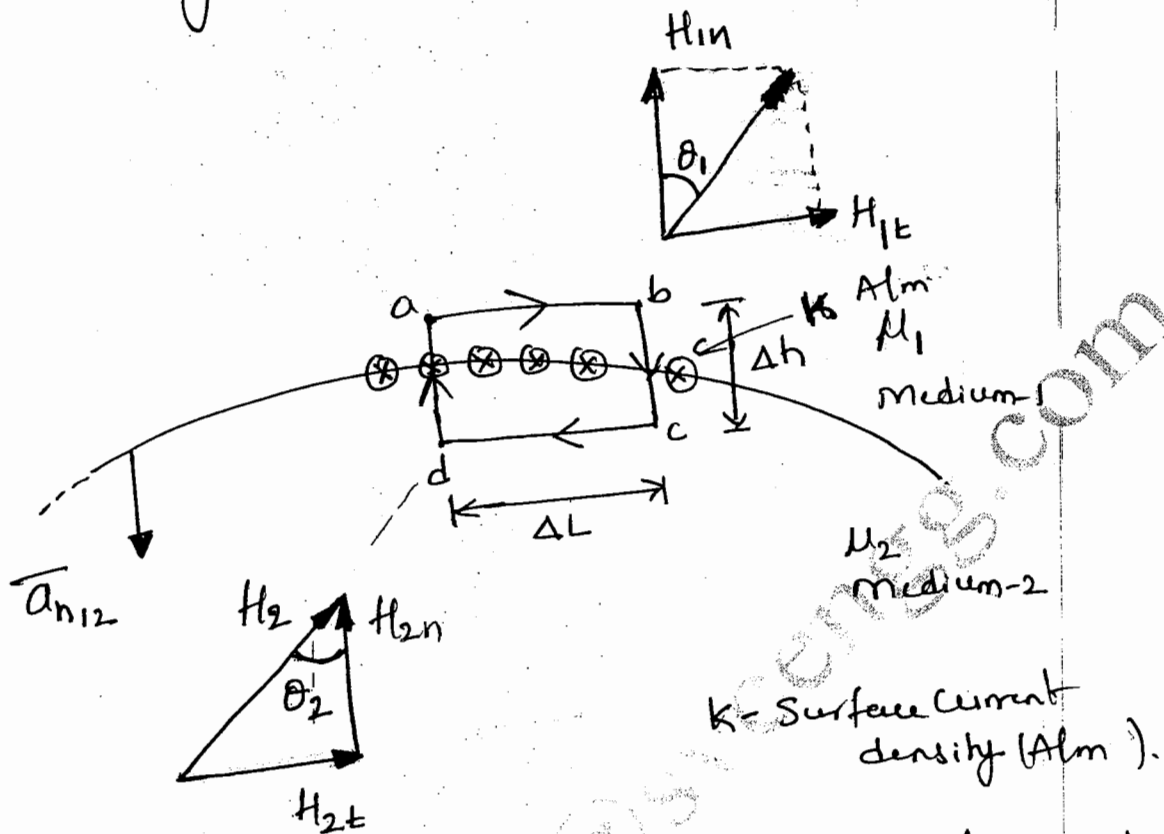 H1n
θ1
H1t
a
b
K A/m
μ1
Δh
Medium-1
c
d
ΔL
μ2
Medium-2
an12
H2
H2n
θ2
H2t
K - Surface Current
density (A/m).